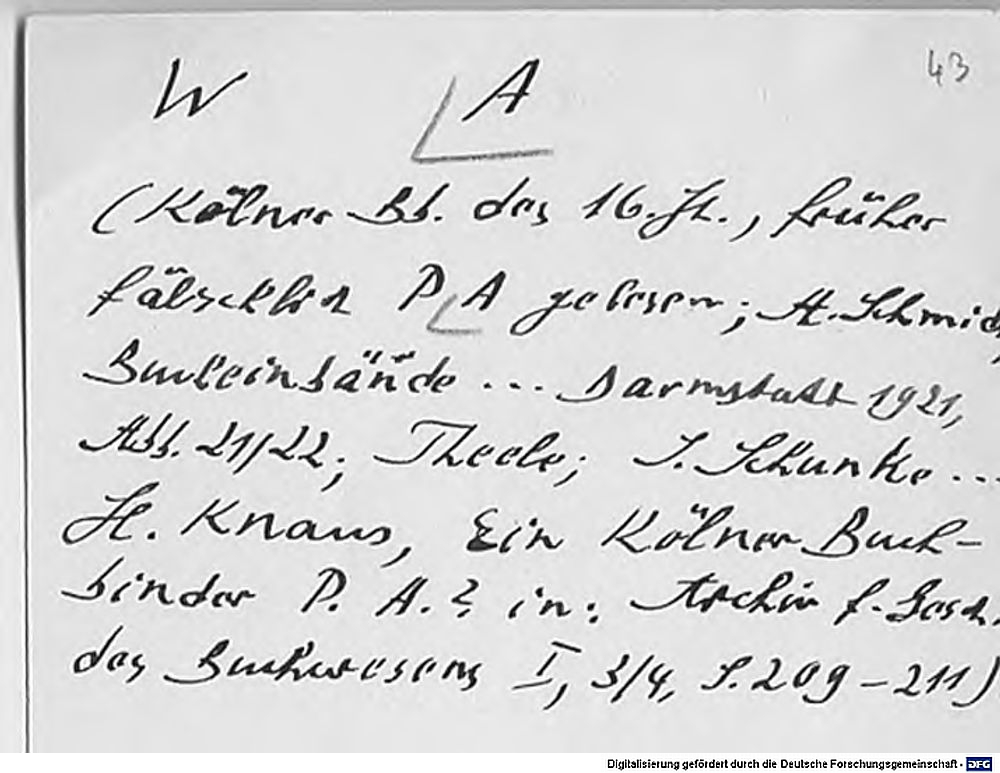 43
W A
(Kölner Bb. des 16. Jh., früher
fälschlich P A gelesen; A. Schmidt,
Bucheinbände ... Darmstadt 1921,
Abb. 21/22; Theele; I. Schunke ...
H. Knaus, Ein Kölner Buch-
binder P. A.? in: Archiv f. Gesch.
des Buchwesens I, 3/4, S. 209-211)
Digitalisierung gefördert durch die Deutsche Forschungsgemeinschaft - DFG